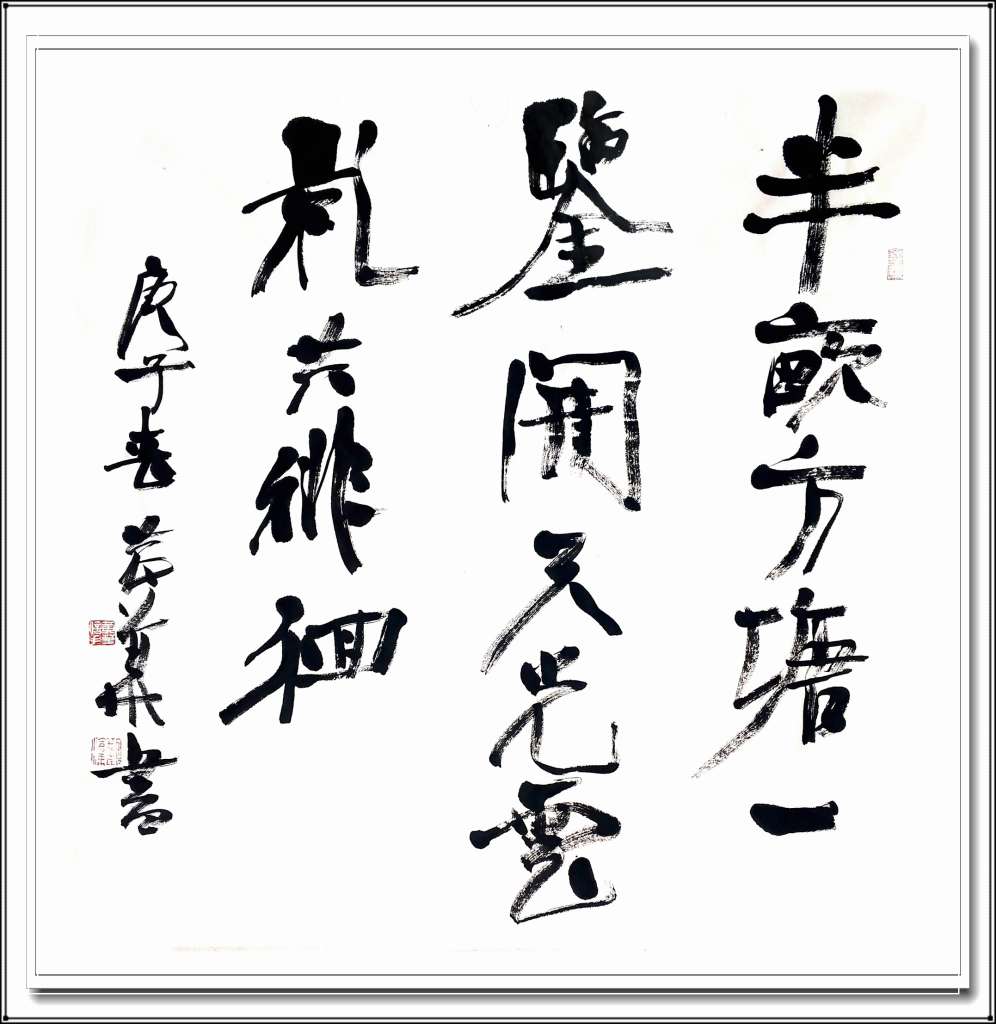 半畝方塘一
鑒開天光雲
影共徘徊
庚子春 書